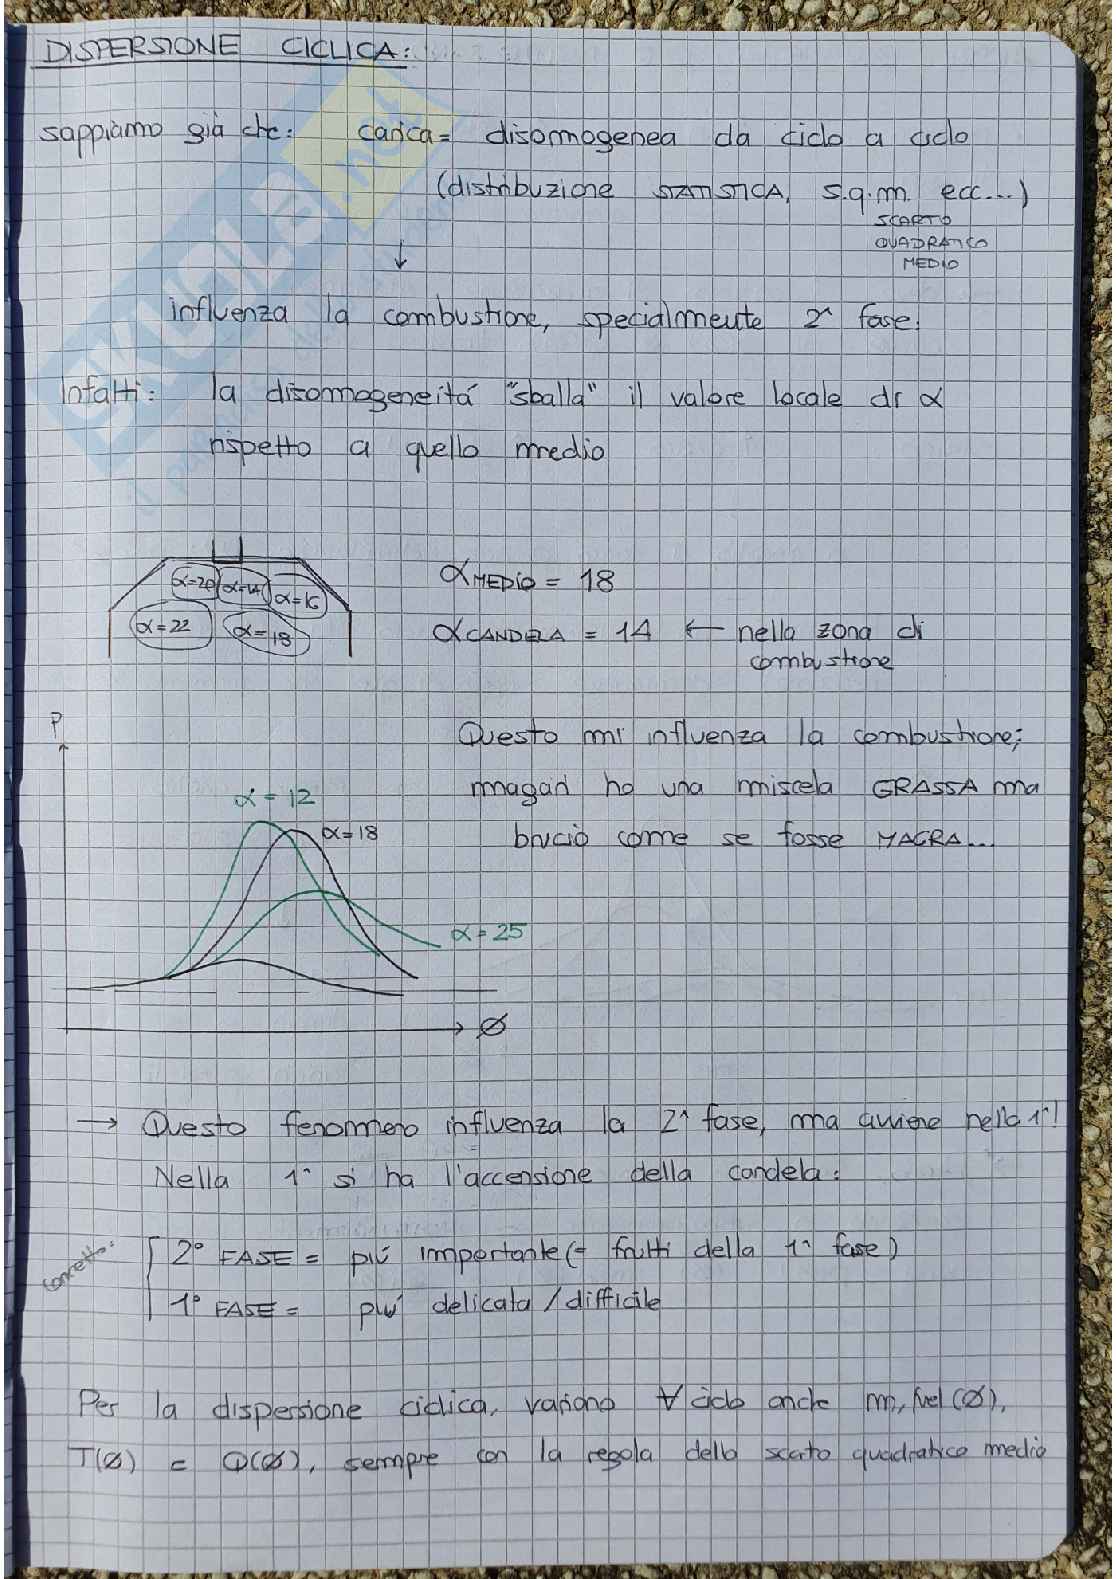 DISPERSIONE CICLICA:
sappiamo già che: carica = disomogenea da ciclo a ciclo
(distribuzione STATISTICA, s.q.m. ecc...)
SCARTO
QUADRATICO
MEDIO
↓
influenza la combustione, specialmente 2^ fase.
Infatti: la disomogeneitá "sballa" il valore locale di α
rispetto a quello medio
α=20 α=14 α=16
α=22 α=18
α MEDIO = 18
α CANDELA = 14 ← nella zona di
combustione
P
Questo mi influenza la combustione;
magari ho una miscela GRASSA ma
brucio come se fosse MAGRA...
α = 12
α=18
α=25
Ø
→ Questo fenomeno influenza la 2^ fase, ma avviene nella 1^!
Nella 1^ si ha l'accensione della candela:
concetto:
2° FASE = piú importante (= frutti della 1^ fase)
1° FASE = piú delicata / difficile
Per la dispersione ciclica, variano ∀ ciclo anche m, fuel (Ø),
T(Ø) = Q(Ø), sempre con la regola dello scarto quadratico medio
SKUOLA.net